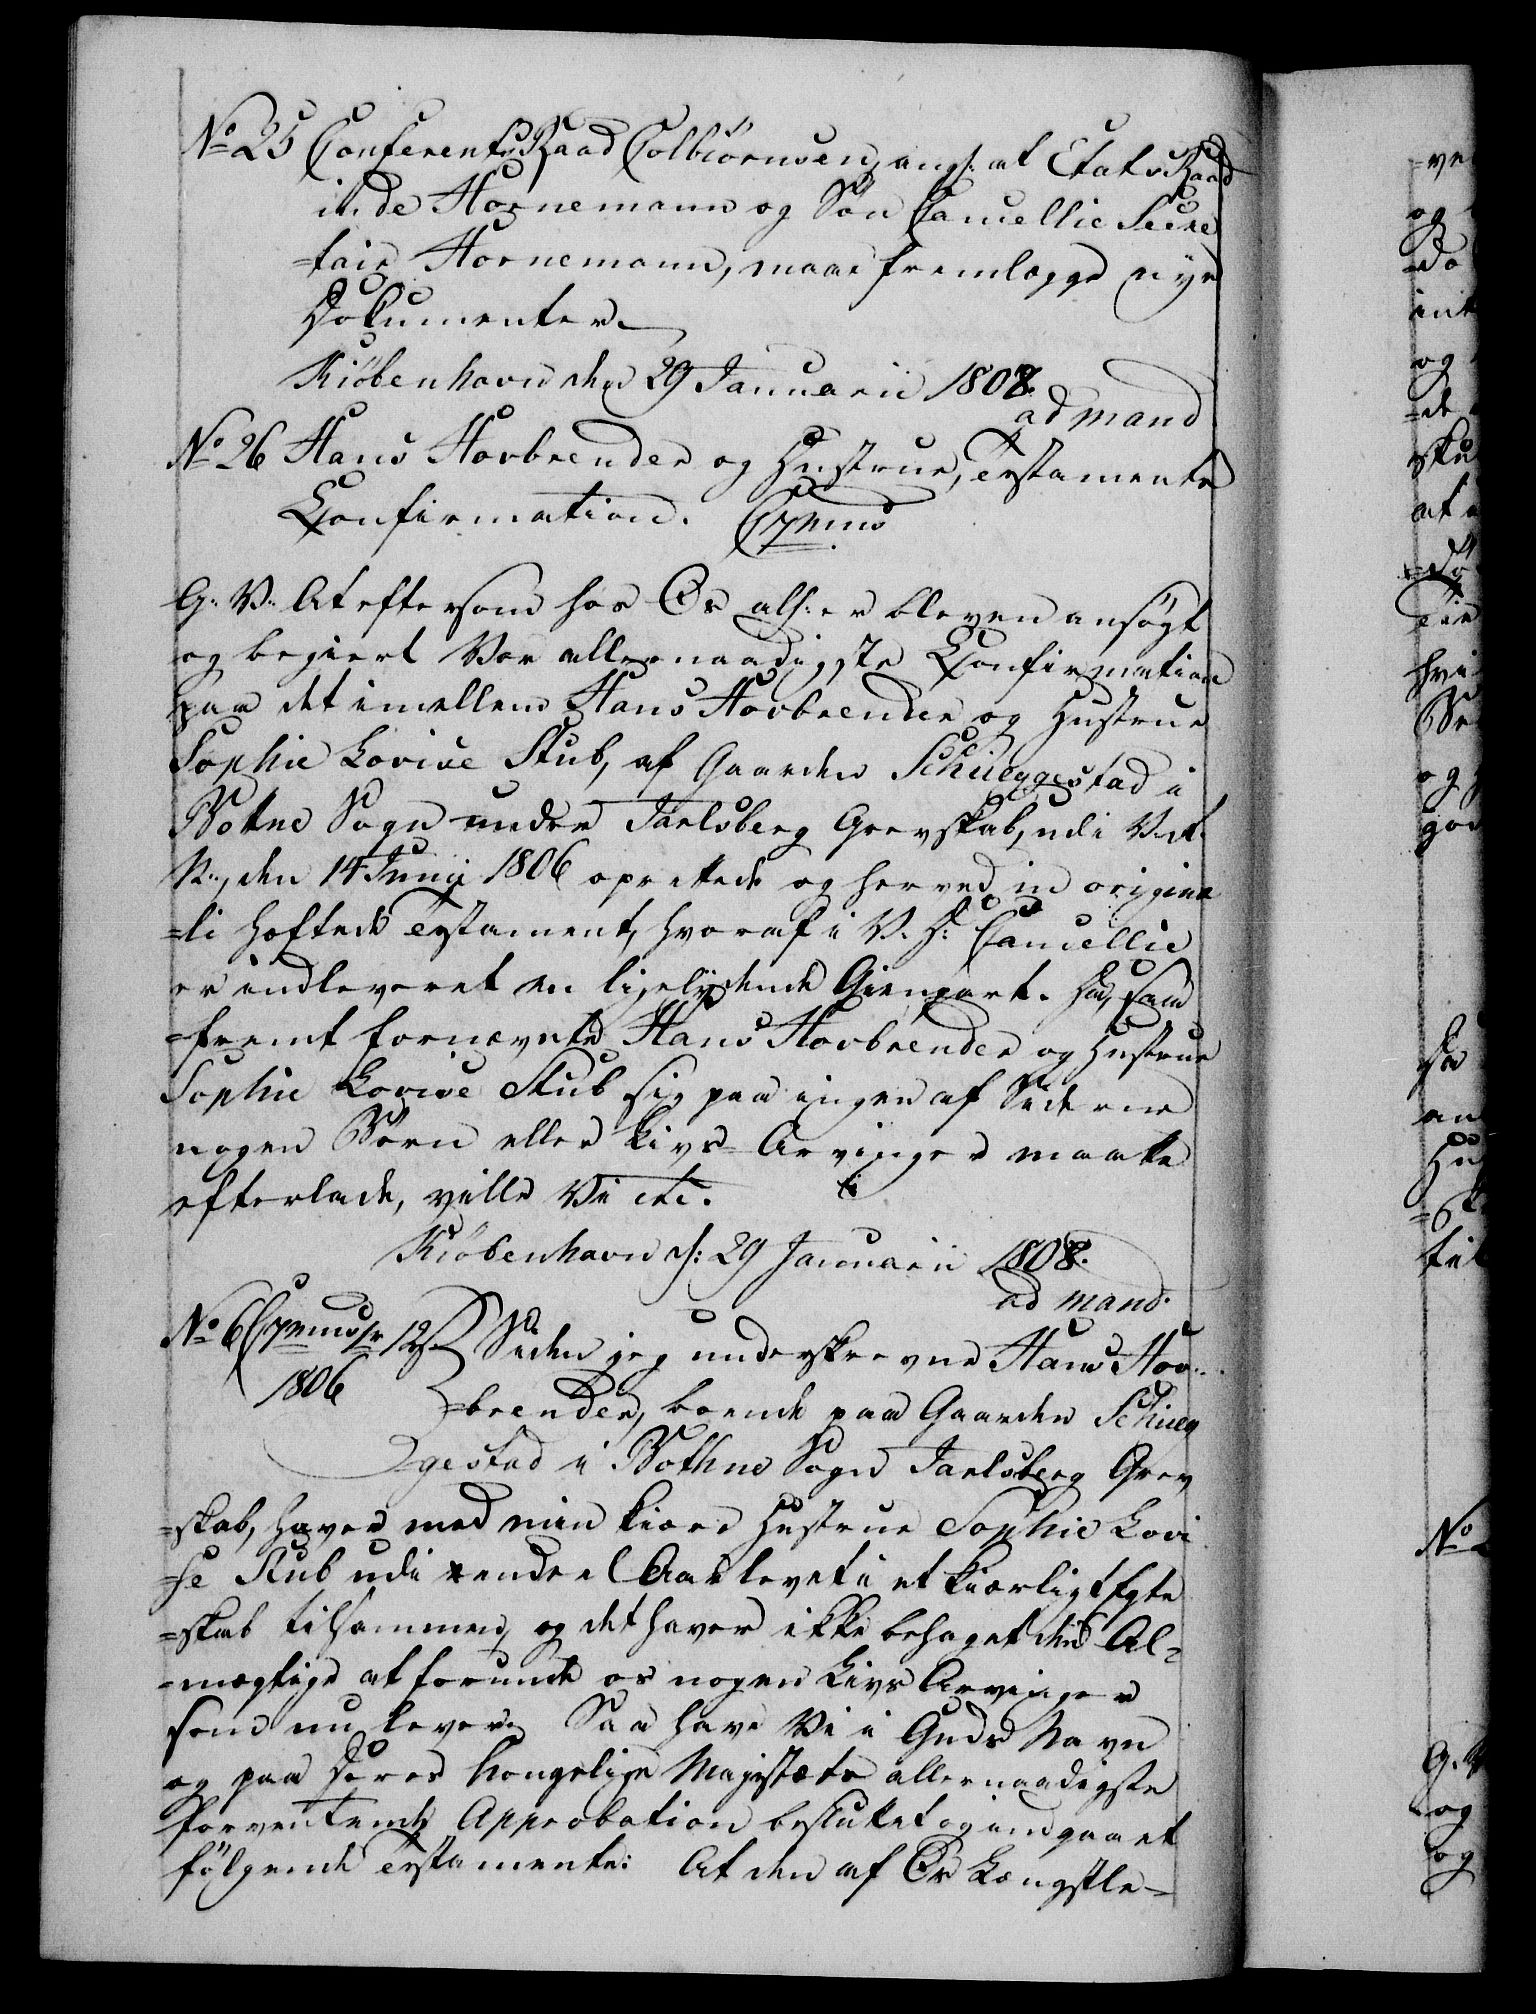 No 25 Conferents Raad Colbiørnsen, ang: at Etats Raad
inde Hornemann og Søn Cancellie Secre
=tair Hornemann, maae fremlægge nye
Dokumenter.
Kiøbenhavn den 29 Januarii 1808.
ad mand
No 26 Hans Hovbrender og Hustrue, Testaments
Confirmation. Cgnus
G. V. At eftersom hos Os alh: er bleven ansøgt
og begiert Vor allernaadigste Confirmation
paa det imellem Hans Hovbrender og Hustrue
Sophie Lovise Stub, af Gaarden Schieggestad i
Botne Sogn under Jarlsberg Grevskab, udi V. R.
N., den 14 Junii 1806 oprettede og herved in origina
=li heftede Testament, hvoraf i V. D. Cancellie
er indleveret en ligelydende Gienpart. Og, saa
=fremt fornævnte Hans Hovbrender og Hustrue
Sophie Lovise Stub sig paa ingen af Siderne
nogen Børn eller Livs-Arvinger maatte
efterlade, ville Vi etc.
Kiøbenhavn d: 29 Januarii 1808.
ad mand.
No 6 Cgnus 12 Siden jeg underskrevne Hans Hov-
1806
=brender, boende paa Gaarden Schieg
=gestad i Bothne Sogn Jarlsberg Grev
=skab, haver med min kiære Hustrue Sophie Lovi
=se Stub udi endeel Aar levet i et kiærligt Egte
=skab tilsammen, og det haver ikke behaget den Al=
=mægtige at forunde os nogen Livs Arvinger
som nu lever. Saa have Vi i Guds Navn
og paa Deres Kongelige Majestæts allernaadigste
forventende Approbation besluttet og indgaaet
følgende Testamente: At den af Os Længstle-